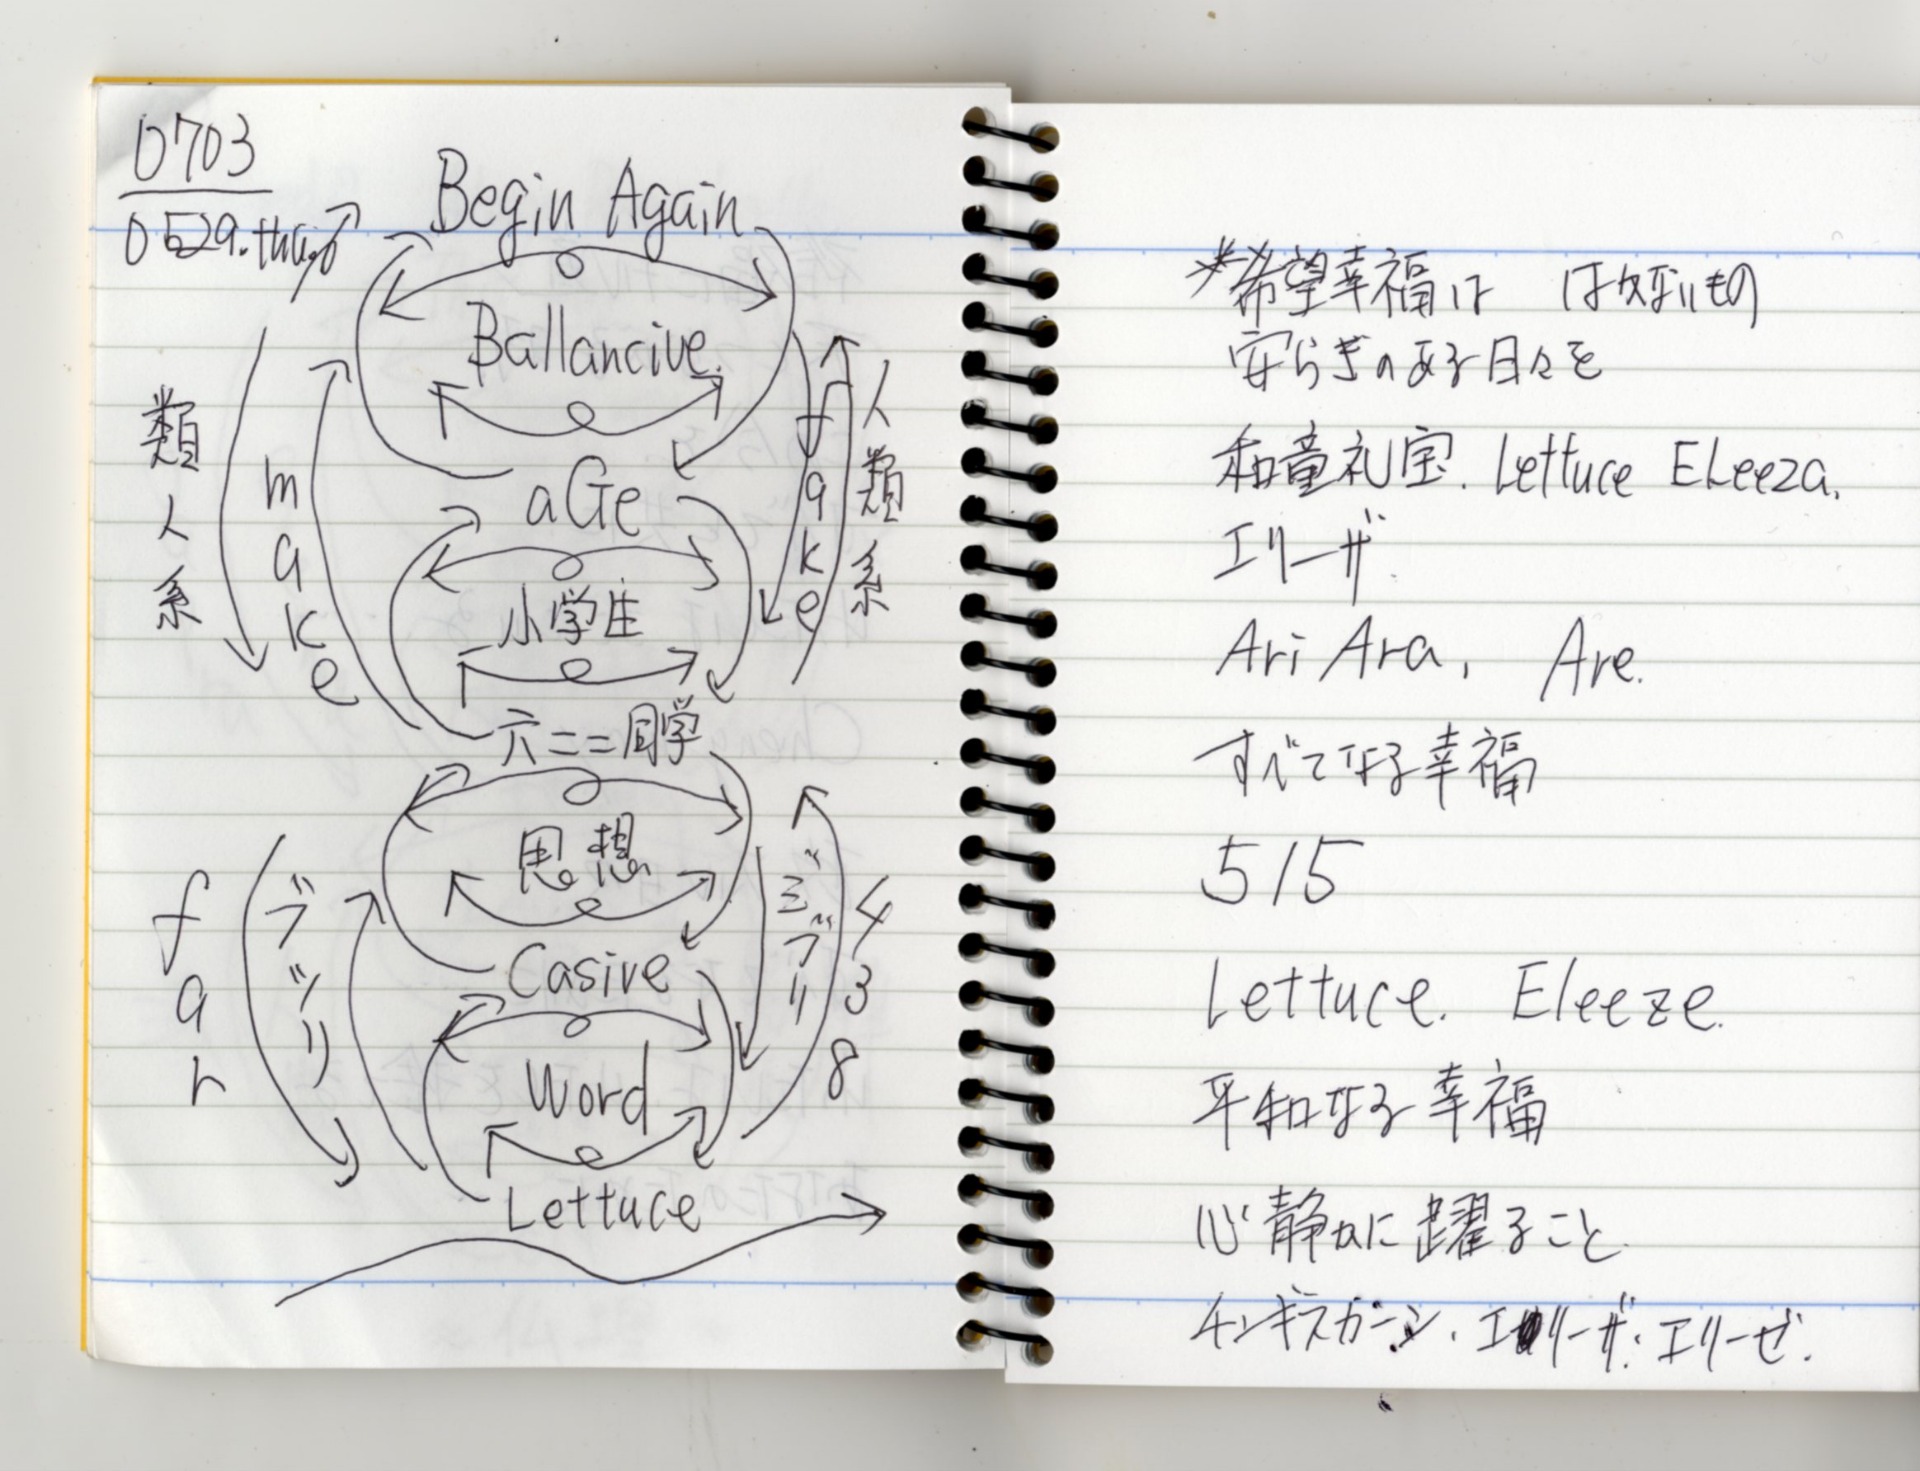 0703
0529.thu.
Begin Again
Ballancive.
aGe
小学生
六二二同学
思想
Casive
Word
Lettuce
類人系
make
fake
人類系
far
ブツリ
ミ゛ブリ
438
*希望幸福は はかないもの
安らぎのある日々を
和童礼宝. Lettuce ELeeza.
エリーザ.
Ari Ara, Are.
すべてなる幸福
515
Lettuce. Eleeze.
平和なる幸福
心静かに躍ること
チンギスカーン. エリーザ. エリーゼ.